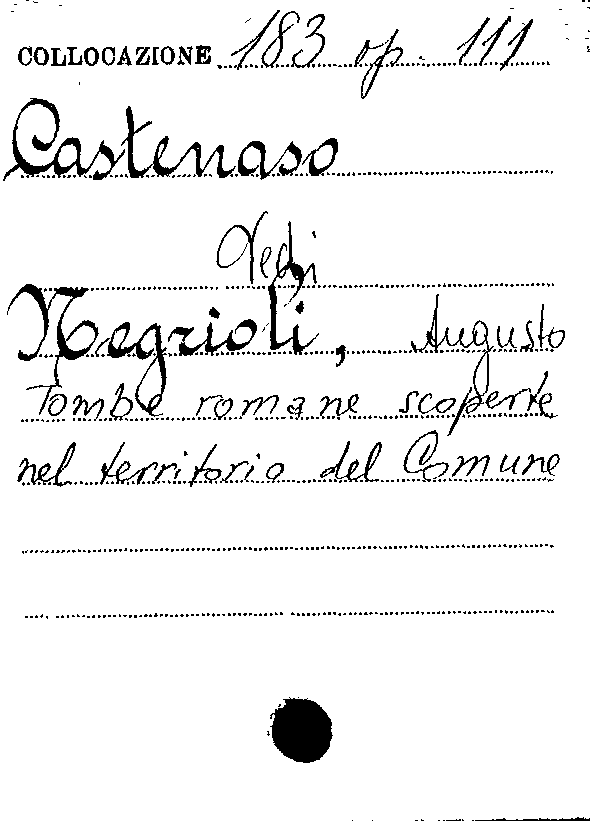 COLLOCAZIONE 183 op. 111
Castenaso
Vedi
Negrioli, Augusto
Tombe romane scoperte
nel territorio del Comune